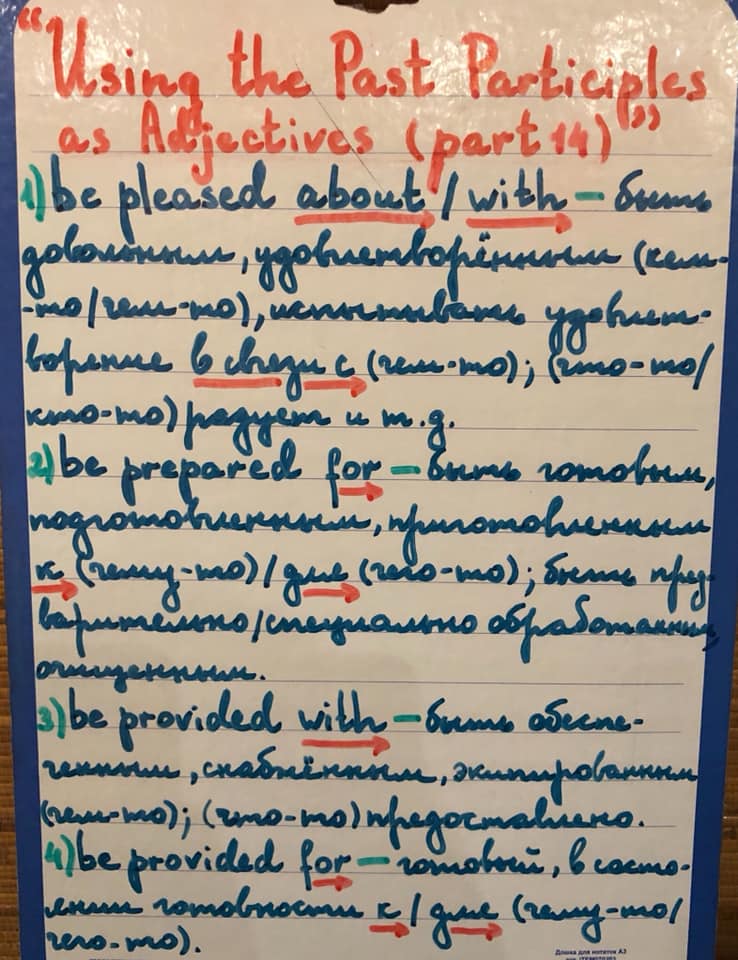 “Using the Past Participles
as Adjectives (part 14)”
1) be pleased about / with – быть
довольным, удовлетворённым (кем-
-то/чем-то), испытывать удовлет-
ворение в связи с (чем-то); (что-то/
кто-то) радует и т.д.
2) be prepared for – быть готовым,
подготовленным, приготовленным
к (чему-то) / для (чего-то); быть пред-
варительно/специально обработанным,
очищенным.
3) be provided with – быть обеспе-
ченным, снабжённым, экипированным
(чем-то); (что-то) предоставлено.
4) be provided for – готовый, в состо-
янии готовности к / для (чему-то/
чего-то).
Дошка для нотаток А3